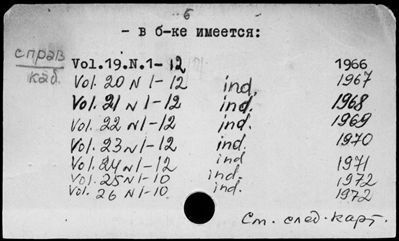 6
- в б-ке имеется:
справ
каб.
Vol.19.N.1-12 1966
Vol. 20 N 1-12 ind. 1967
Vol. 21 N 1-12 ind. 1968
Vol. 22 N 1-12 ind. 1969
Vol. 23 N 1-12 ind. 1970
Vol. 24 N 1-12 ind 1971
Vol. 25 N 1-10 ind. 1972
Vol. 26 N 1-10 ind. 1972
См. след. карт.